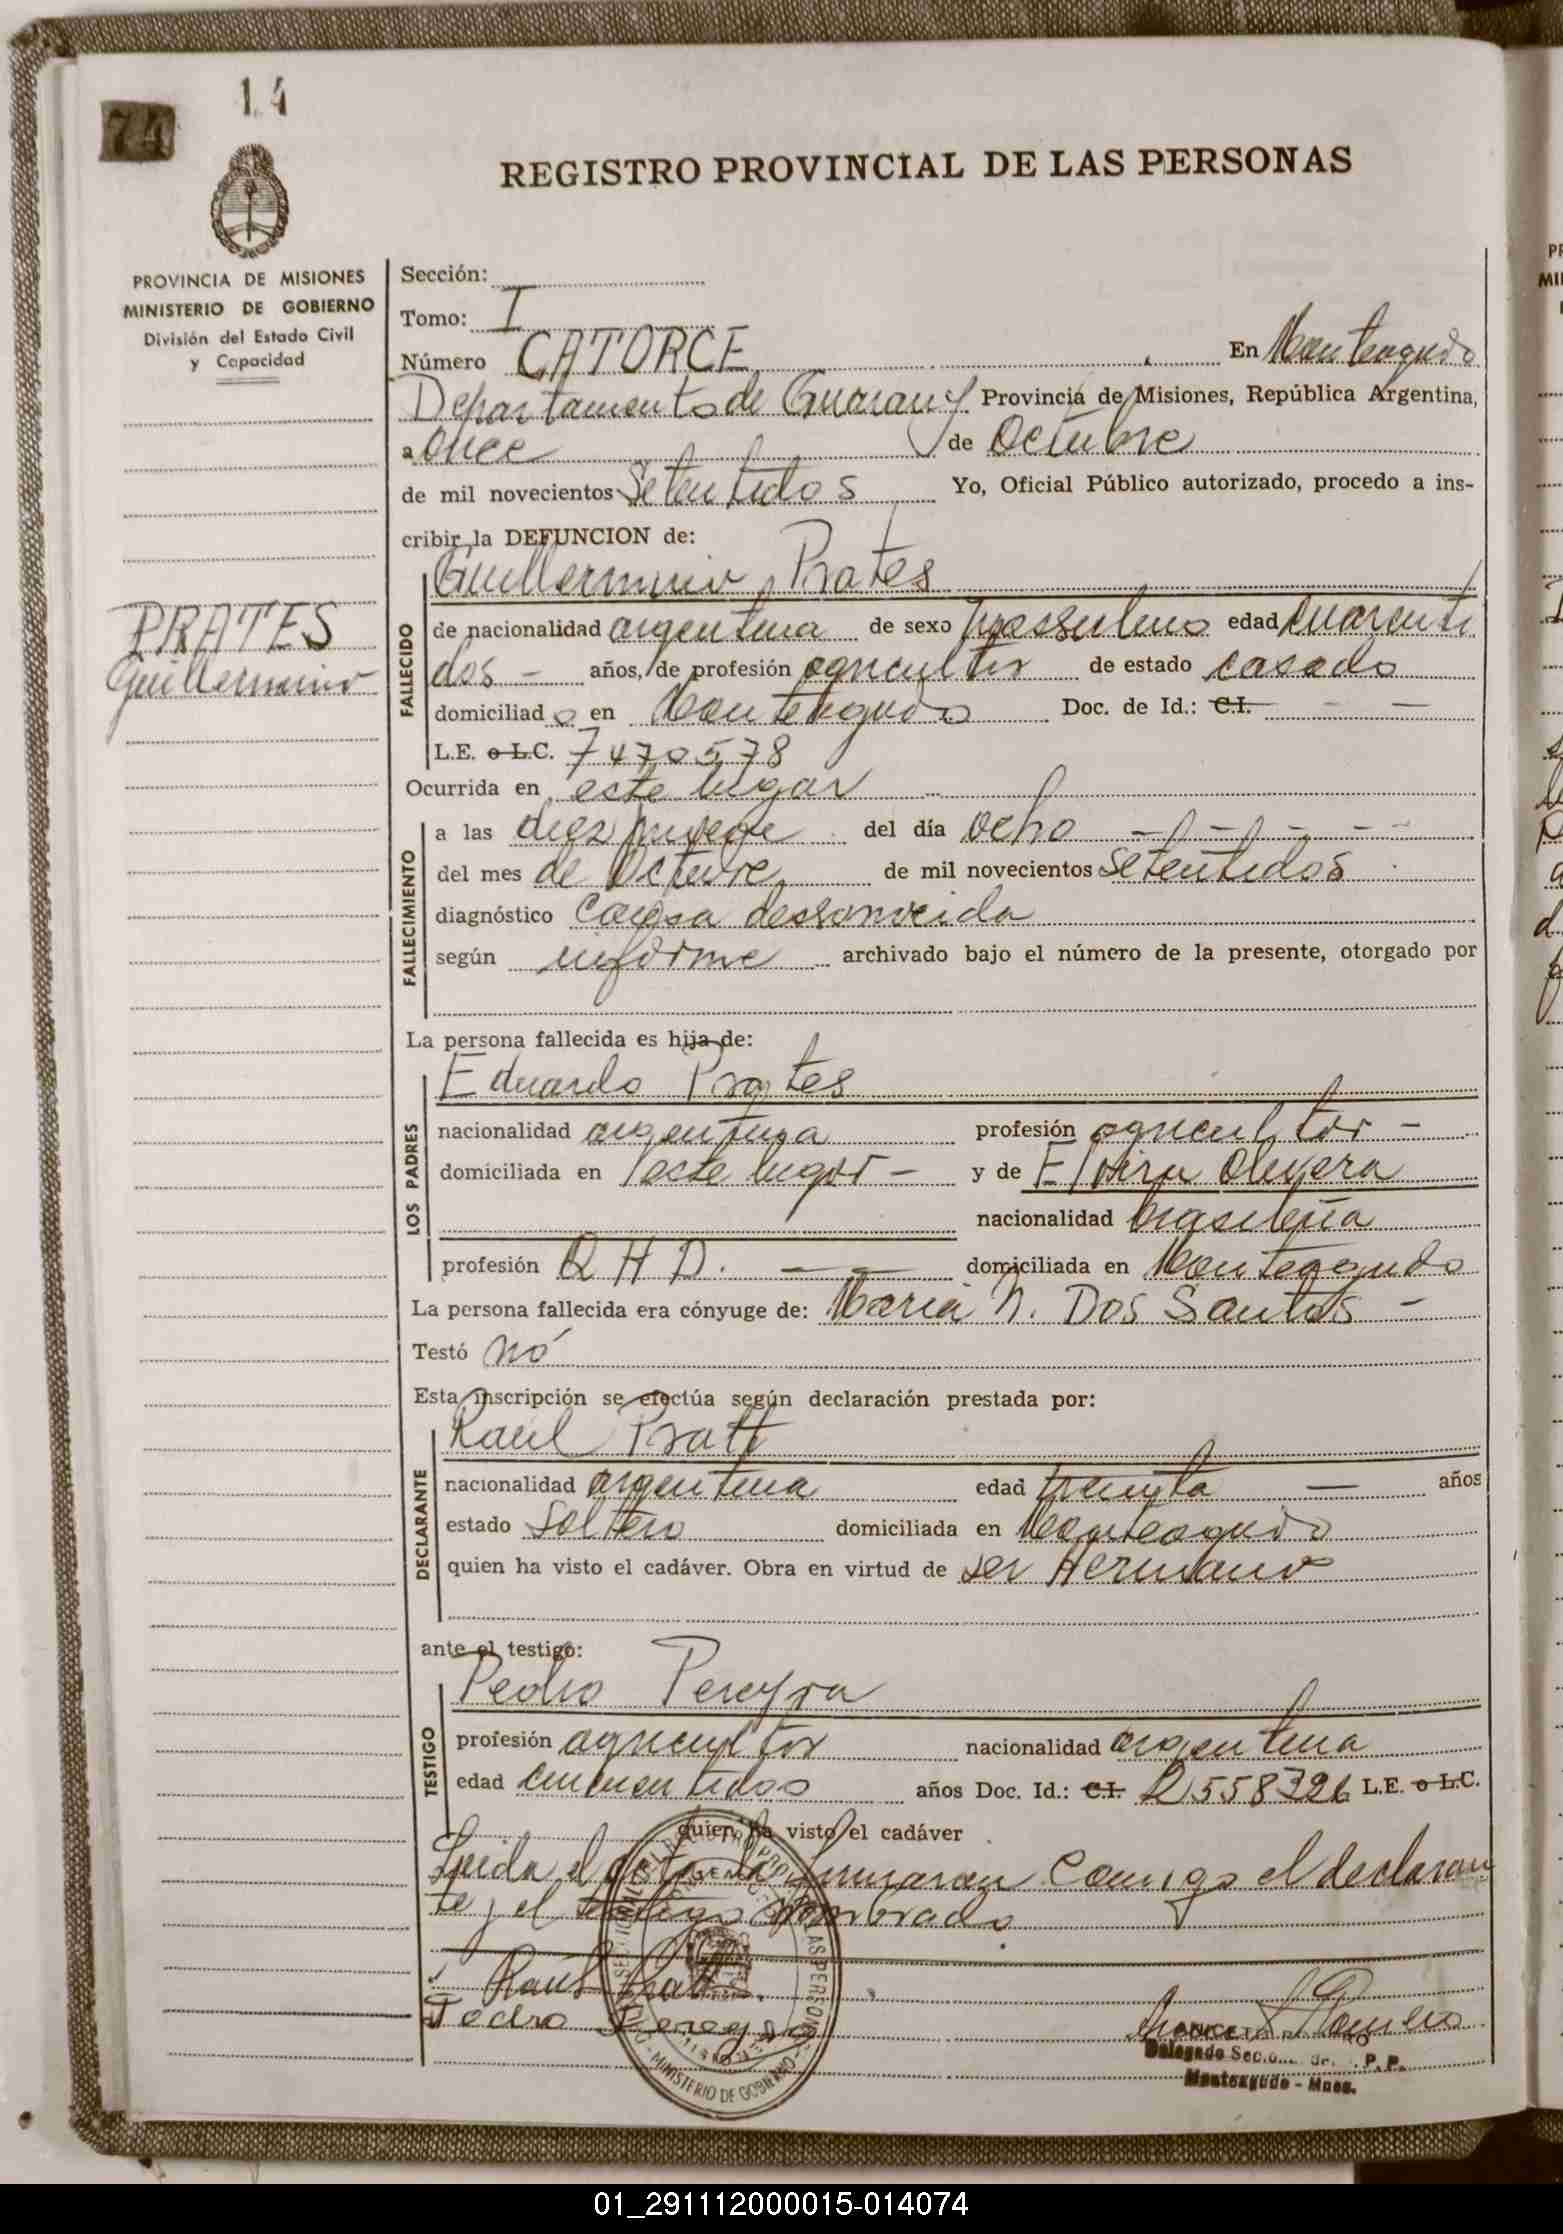 14
74
REGISTRO PROVINCIAL DE LAS PERSONAS
PROVINCIA DE MISIONES
MINISTERIO DE GOBIERNO
División del Estado Civil
y Capacidad
PRATES
Guillermino
Sección:
Tomo: I
Número CATORCE En Monteagudo
Departamento de Guarany Provincia de Misiones, República Argentina,
a once de Octubre
de mil novecientos Setentidos Yo, Oficial Público autorizado, procedo a ins-
cribir la DEFUNCION de:
Guillermino Prates
FALLECIDO
de nacionalidad argentina de sexo masculino edad cuarenti
dos - años, de profesión agricultor de estado casado
domiciliado en Monteagudo Doc. de Id.: C.I. - -
L.E. o L.C. 7470578
Ocurrida en este lugar
FALLECIMIENTO
a las diez nueve del día ocho - - - - -
del mes de Octubre de mil novecientos setentidos
diagnóstico causa desconocida
según informe archivado bajo el número de la presente, otorgado por
La persona fallecida es hija de:
LOS PADRES
Eduardo Prates
nacionalidad argentina profesión agricultor -
domiciliada en este lugar - y de Elvira Olivera
nacionalidad brasileña
profesión Q H D. - - domiciliada en Monteagudo
La persona fallecida era cónyuge de: Maria N. Dos Santos -
Testó nó
Esta inscripción se efectúa según declaración prestada por:
DECLARANTE
Raúl Pratt
nacionalidad argentina edad treinta - años
estado Soltero domiciliada en Monteagudo
quien ha visto el cadáver. Obra en virtud de ser Hermano
ante el testigo:
TESTIGO
Pedro Pereyra
profesión agricultor nacionalidad argentina
edad cincuentidos años Doc. Id.: C.I. 2558326 L.E. o L.C.
quien ha visto el cadáver
Leida el acta la firmaron Comigo el declaran
te y el testigo nombrado.
Raúl Pratt.
Pedro Pereyra
MINISTERIO DE GOBIERNO
Romero
ANICETO
Delegado P.P.
Monteagudo - Mnes.
01_291112000015-014074